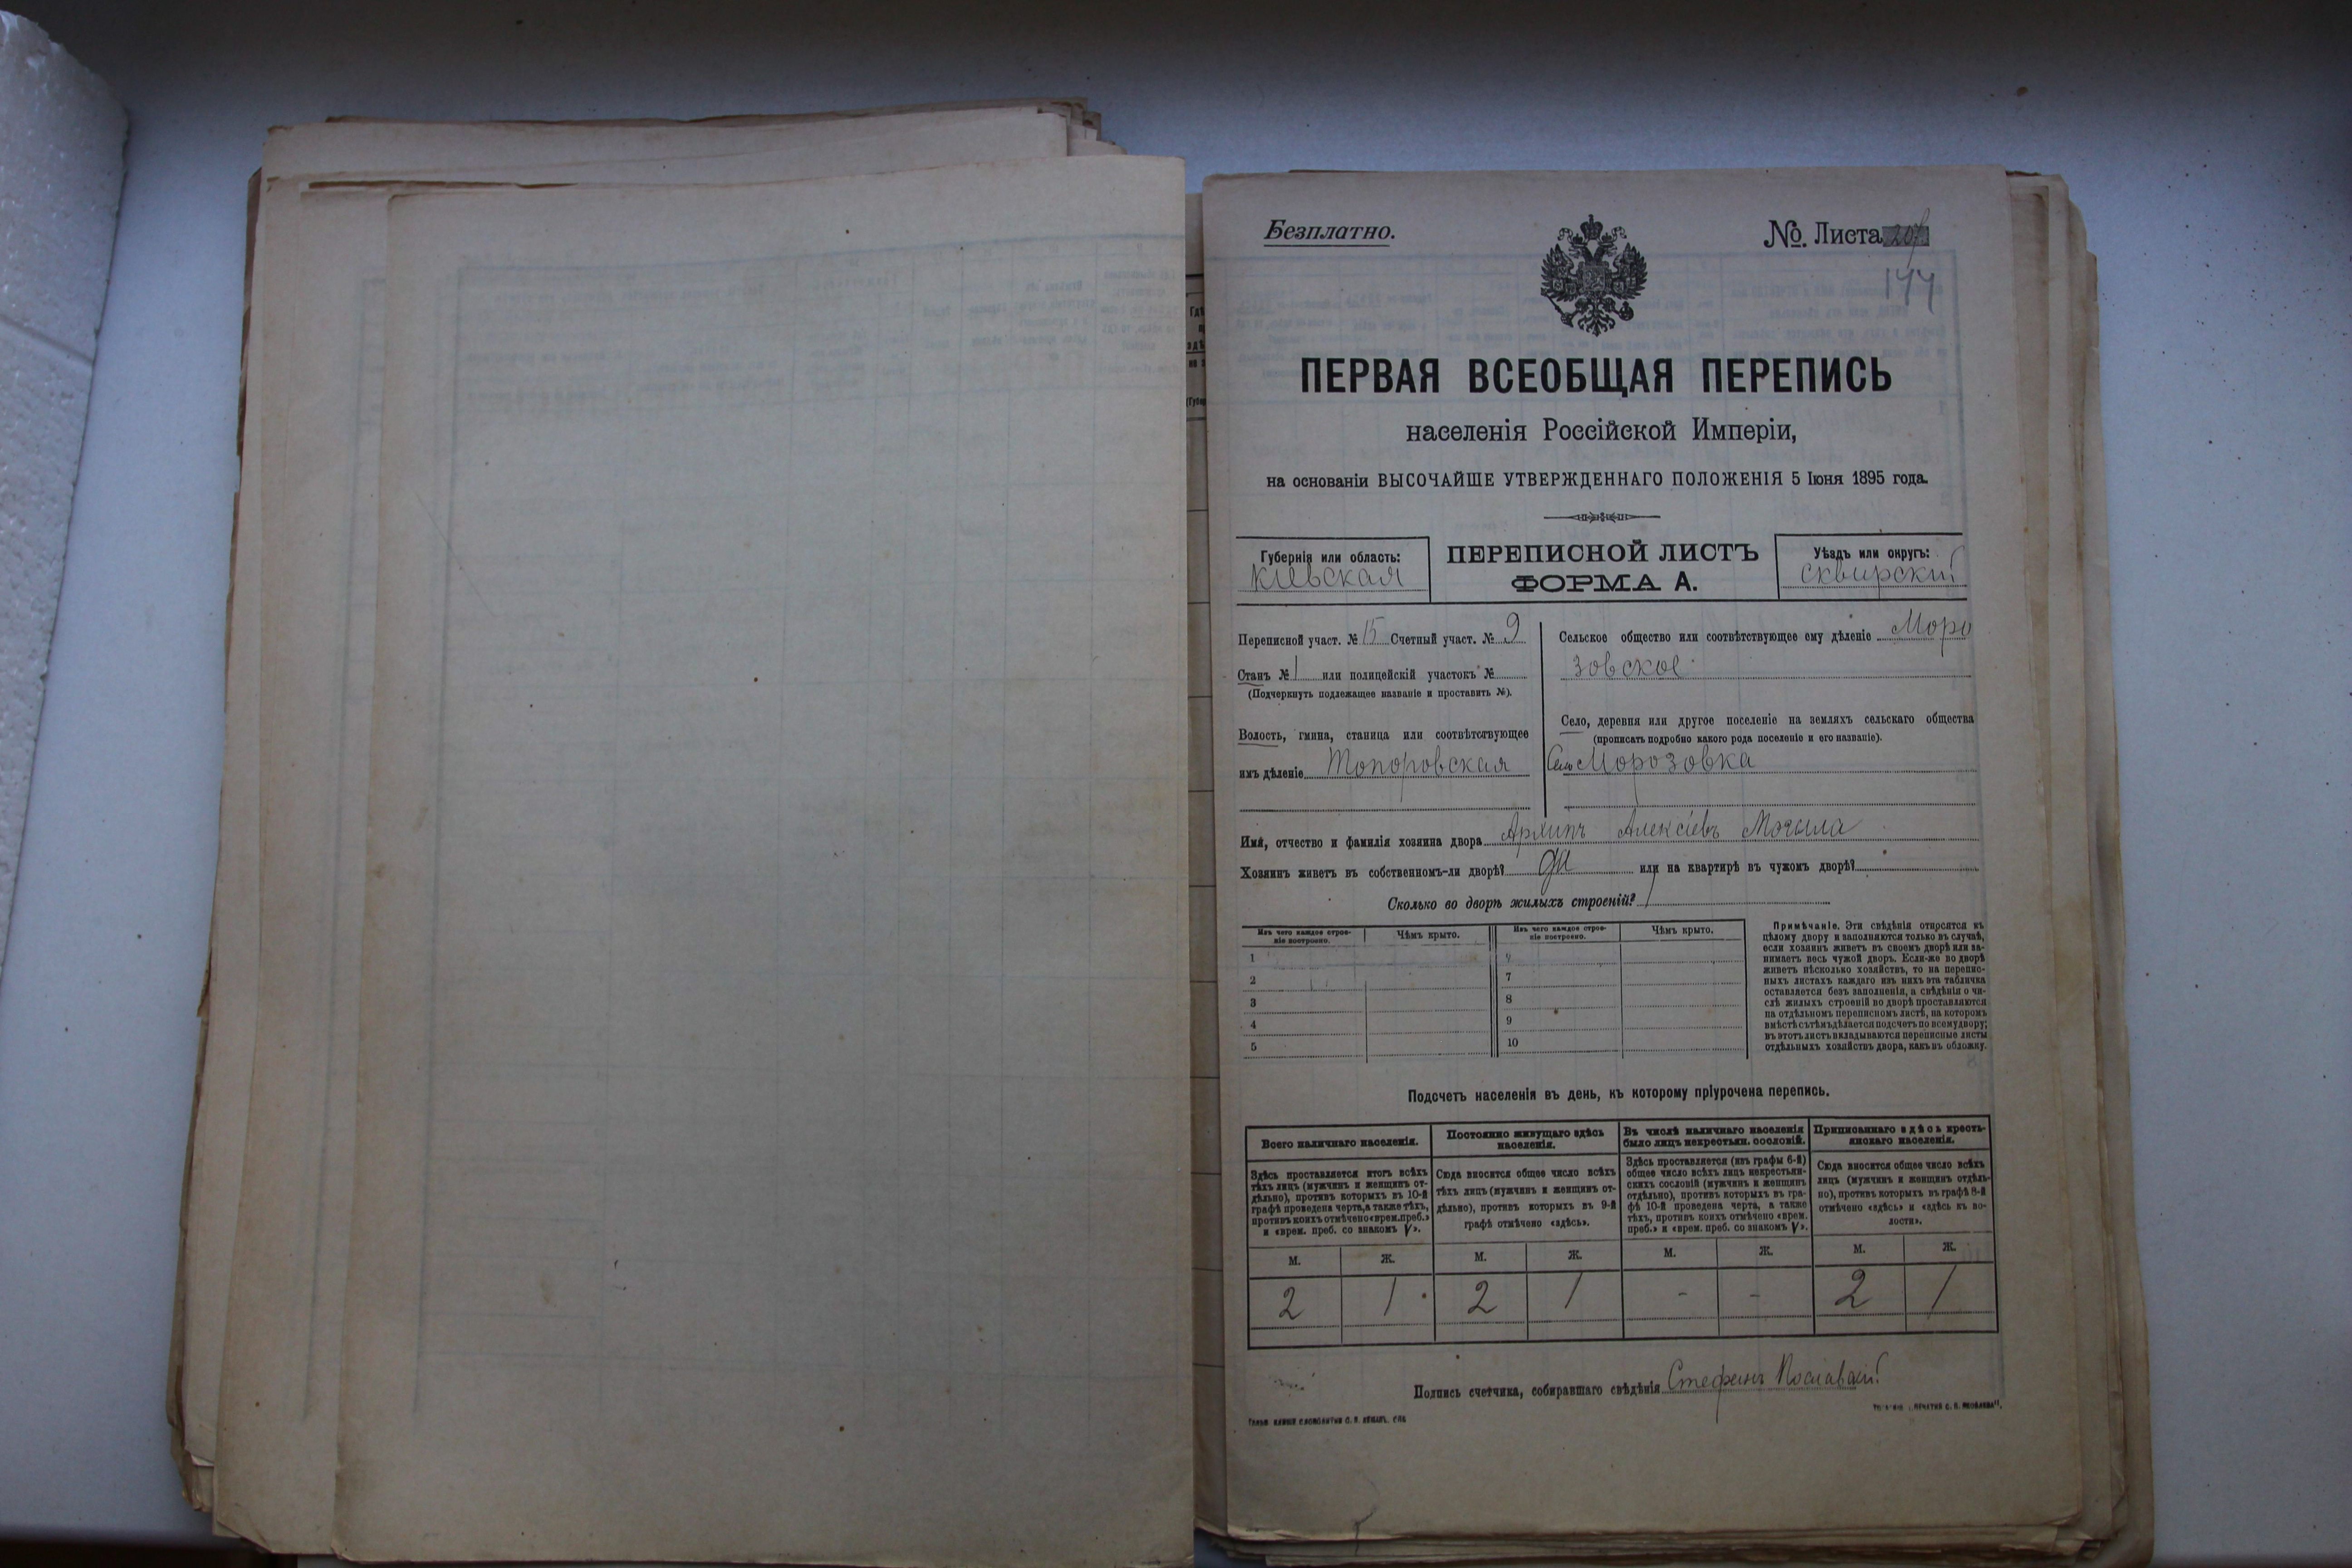 Безплатно.
№ Листа 207
144
ПЕРВАЯ ВСЕОБЩАЯ ПЕРЕПИСЬ
населенія Россійской Имперіи,
на основаніи ВЫСОЧАЙШЕ УТВЕРЖДЕННАГО ПОЛОЖЕНІЯ 5 Іюня 1895 года.
Губернія или область:
Кіевская
ПЕРЕПИСНОЙ ЛИСТЪ
ФОРМА А.
Уѣздъ или округъ:
Сквирскій
Переписной участ. № 15 Счетный участ. № 9
Станъ № 1 или полицейскій участокъ №
(Подчеркнуть подлежащее названіе и проставить №).
Волость, гмина, станица или соотвѣтствующее
имъ дѣленіе Топоровская
Сельское общество или соотвѣтствующее ему дѣленіе Моро
зовское
Село, деревня или другое поселеніе на земляхъ сельскаго общества
(прописать подробно какого рода поселеніе и его названіе).
Село Морозовка
Имя, отчество и фамилія хозяина двора Архипъ Алексіевъ Могила
Хозяинъ живетъ въ собственномъ-ли дворѣ? да или на квартирѣ въ чужомъ дворѣ?
Сколько во дворѣ жилыхъ строеній? 1
Изъ чего каждое строе-
ніе построено.
Чѣмъ крыто.
Изъ чего каждое строе-
ніе построено.
Чѣмъ крыто.
1
2 7
3 8
4 9
5 10
Примѣчаніе. Эти свѣдѣнія относятся къ
цѣлому двору и заполняются только въ случаѣ,
если хозяинъ живетъ въ своемъ дворѣ или за-
нимаетъ весь чужой дворъ. Если-же во дворѣ
живетъ нѣсколько хозяйствъ, то на перепис-
ныхъ листахъ каждаго изъ нихъ эта табличка
оставляется безъ заполненія, а свѣдѣнія о чи-
слѣ жилыхъ строеній во дворѣ проставляются
на отдѣльномъ переписномъ листѣ, на которомъ
вмѣстѣ съ тѣмъ дѣлается подсчетъ по всему двору;
въ этотъ листъ вкладываются переписные листы
отдѣльныхъ хозяйствъ двора, какъ въ обложку.
Подсчетъ населенія въ день, къ которому пріурочена перепись.
Всего наличнаго населенія.
Здѣсь проставляется итогъ всѣхъ
тѣхъ лицъ (мужчинъ и женщинъ от-
дѣльно), противъ которыхъ въ 10-й
графѣ проведена черта, а также тѣхъ,
противъ коихъ отмѣчено «врем. преб.»
и «врем. преб. со знакомъ V».
Постоянно живущаго здѣсь
населенія.
Сюда вносится общее число всѣхъ
тѣхъ лицъ (мужчинъ и женщинъ от-
дѣльно), противъ которыхъ въ 9-й
графѣ отмѣчено «здѣсь».
Въ числѣ наличнаго населенія
было лицъ некрестьян. сословій.
Здѣсь проставляется (изъ графы 6-й)
общее число всѣхъ лицъ некрестьян-
скихъ сословій (мужчинъ и женщинъ
отдѣльно), противъ которыхъ въ гра-
фѣ 10-й проведена черта, а также
тѣхъ, противъ коихъ отмѣчено «врем.
преб.» и «врем. преб. со знакомъ V».
Приписаннаго здѣсь кресть-
янскаго населенія.
Сюда вносится общее число всѣхъ
лицъ (мужчинъ и женщинъ отдѣль-
но), противъ которыхъ въ графѣ 8-й
отмѣчено «здѣсь» и «здѣсь къ во-
лости».
М. Ж. М. Ж. М. Ж. М. Ж.
2 1 2 1 - - 2 1
Подпись счетчика, собиравшаго свѣдѣнія Стефанъ